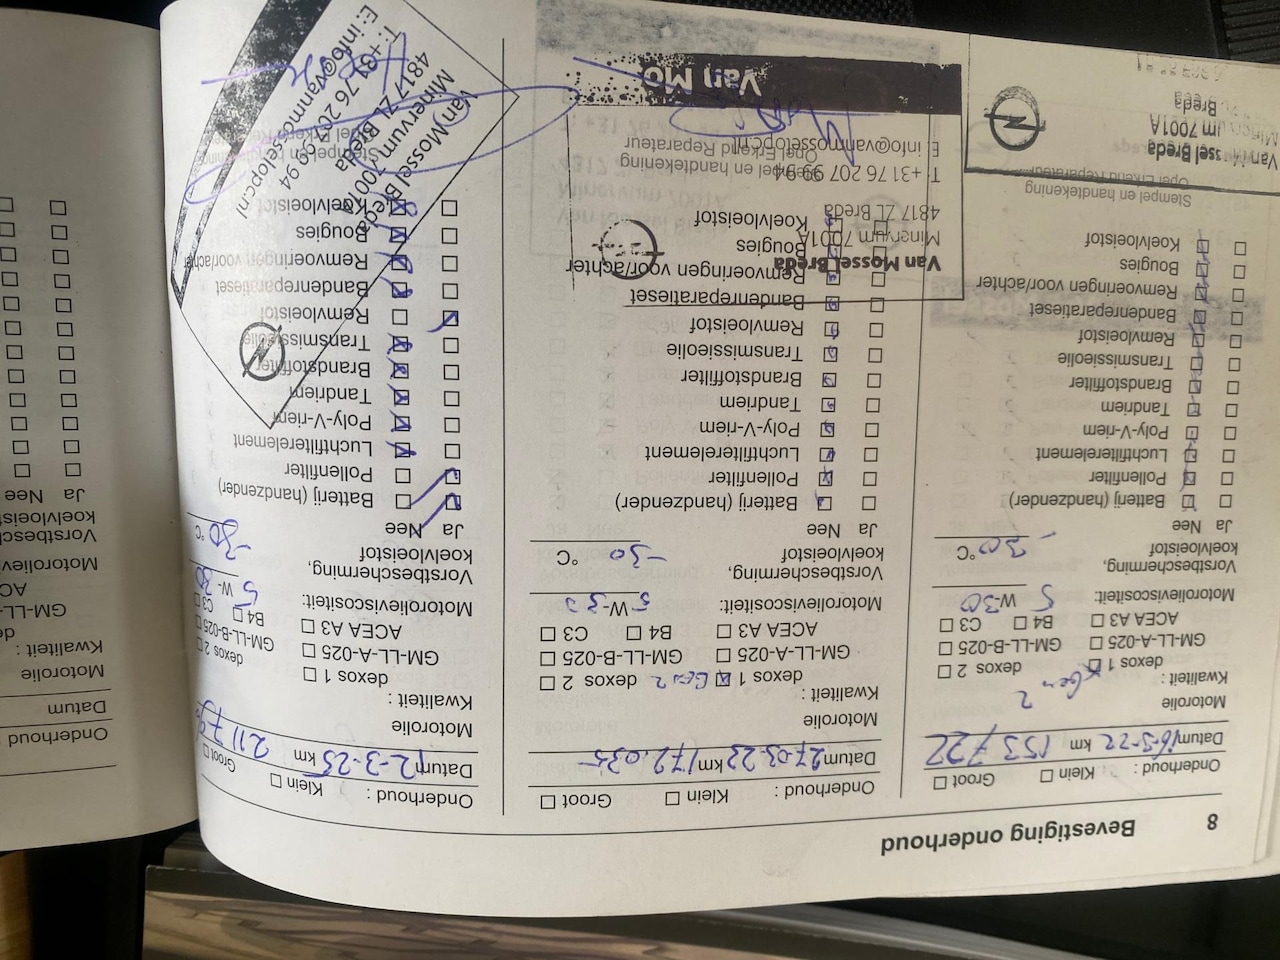 8 Bevestiging onderhoud
Onderhoud : Klein Groot
Datum 16-3-22 km 153722
Motorolie
Kwaliteit :
dexos 1 Gen 2 dexos 2
GM-LL-A-025 GM-LL-B-025
ACEA A3 B4 C3
Motorolieviscositeit: 5 W-30
Vorstbescherming,
koelvloeistof -30 °C
Ja Nee
Batterij (handzender)
Pollenfilter
Luchtfilterelement
Poly-V-riem
Tandriem
Brandstoffilter
Transmissieolie
Remvloeistof
Bandenreparatieset
Remvoeringen voor/achter
Bougies
Koelvloeistof
Stempel en handtekening
Opel Erkend Reparateur
Van Mossel Breda
7001A
Breda
Onderhoud : Klein Groot
Datum 27-03-23 km 172.035
Motorolie
Kwaliteit :
dexos 1 Gen 2 dexos 2
GM-LL-A-025 GM-LL-B-025
ACEA A3 B4 C3
Motorolieviscositeit: 5 W-30
Vorstbescherming,
koelvloeistof -30 °C
Ja Nee
Batterij (handzender)
Pollenfilter
Luchtfilterelement
Poly-V-riem
Tandriem
Brandstoffilter
Transmissieolie
Remvloeistof
Bandenreparatieset
Remvoeringen voor/achter
Bougies
Koelvloeistof
Stempel en handtekening
Opel Erkend Reparateur
Van Mossel Breda
Minervum 7001A
4817 ZL Breda
T: +31 76 207 99 94
E: info@vanmosselopc.nl
Van Mo
Onderhoud : Klein Groot
Datum 12-3-25 km
Motorolie
Kwaliteit :
dexos 1 dexos 2
GM-LL-A-025 GM-LL-B-025
ACEA A3 B4 C3
Motorolieviscositeit: 5 W-30
Vorstbescherming,
koelvloeistof -30 °C
Ja Nee
Batterij (handzender)
Pollenfilter
Luchtfilterelement
Poly-V-riem
Tandriem
Brandstoffilter
Transmissieolie
Remvloeistof
Bandenreparatieset
Remvoeringen voor/achter
Bougies
Koelvloeistof
Van Mossel Breda
Minervum 7001A
4817 ZL Breda
T: +31 76 207 99 94
E: info@vanmosselopc.nl
Onderhoud
Datum
Motorolie
Kwaliteit :
GM-LL
Ja Nee